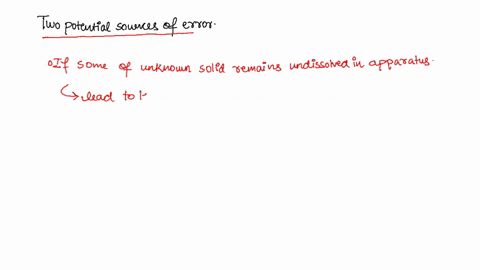 Two potential sources of error.
If some of unknown solid remains undissolved in apparatus.
lead to